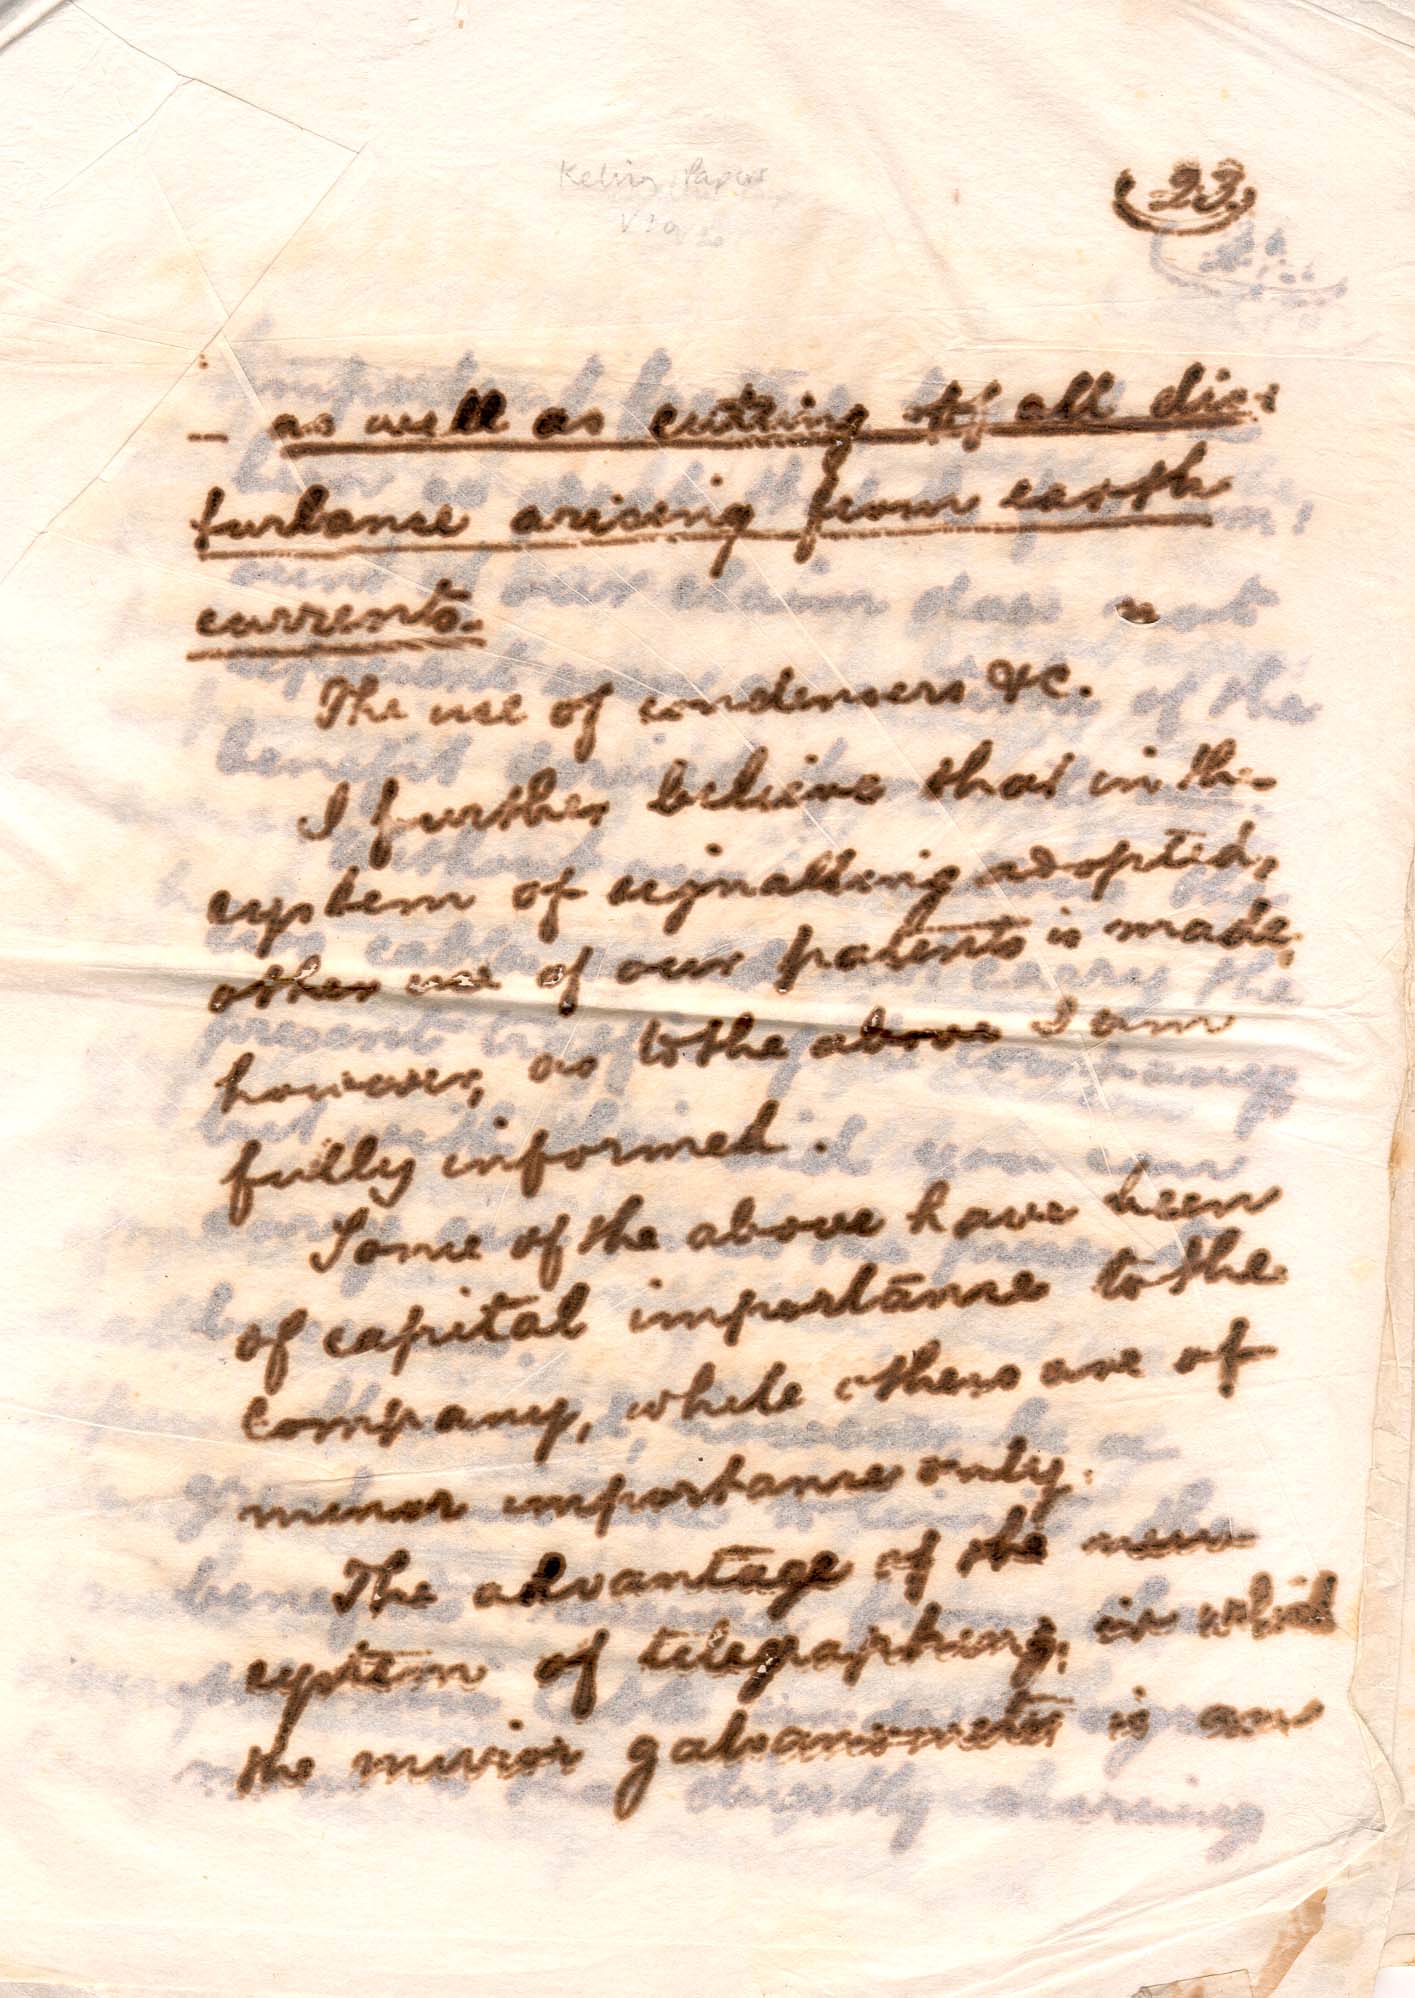 Kelvin Papers
23.
– as well as cutting off all dis:
turbance arising from earth
currents.
The use of condensers &c.
I further believe that in the
system of signalling adopted,
other use of our patents is made,
however, as to the above I am
fully informed.
Some of the above have been
of capital importance to the
company, while others are of
minor importance only.
The advantage of the new
system of telegraphing, in which
the mirror galvanometer is